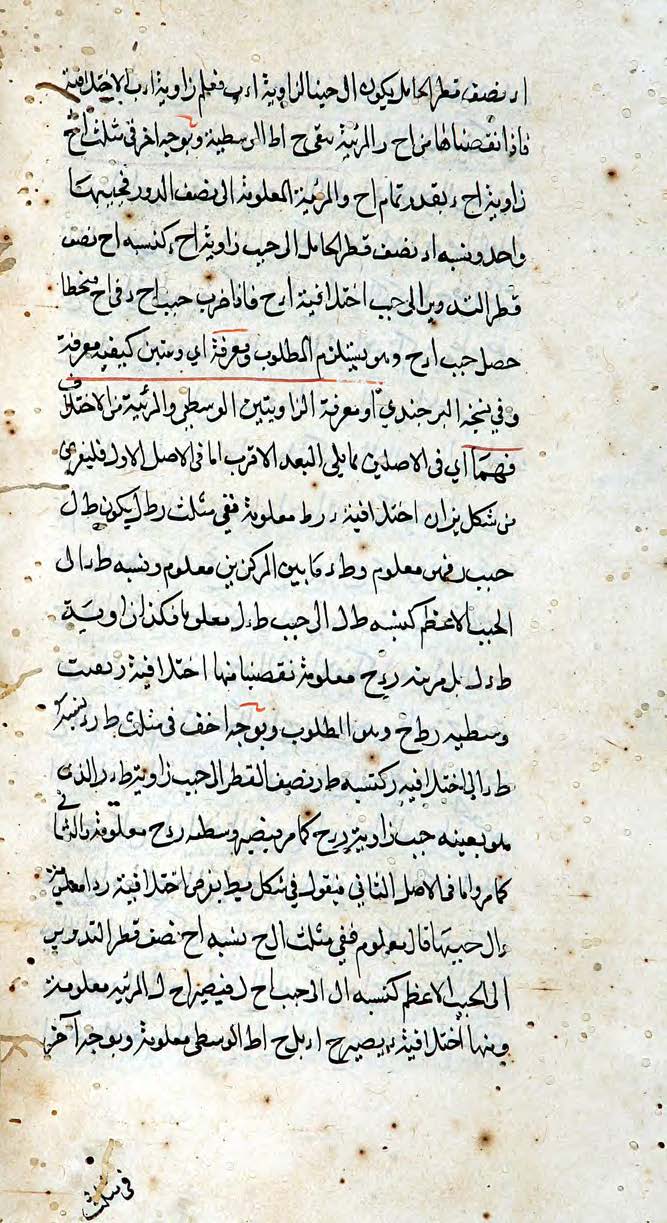 اء نصف قطر الحامل يكون ال جيبا لزاوية اءب فعلم زاوية اءب الاختلافية
فاذا نقصناها من اح ر المرئية بقى ح اط الوسطية وبوجه اخر فى مثلث اح
زاوية اح ء بقدر تمام اح والمرئية المعلومة الى نصف الدور فجيبهما
واحد ونسبة اء نصف قطر الحامل الى جيب زاوية اح ء كنسبة اح نصف
قطر التدوير الى جيب اختلافية اءح فاذا ضرب جيب اح ء فى اح منحطا
حصل جيب اءح وهو يستلزم المطلوب ومعرفة اى ومتبين كيفية معرفة
وفى نسخة البرجندي او معرفة الزاويتين الوسطى والمرئية من الاختلاف
فهما اى فى الاصلين مما يلى البعد الاقرب اما فى الاصل الاول فليفرض
من شكل يز ان اختلافية ء رط معلومة ففى مثلث رط ل يكون ط ل
جيب ر فهو معلوم وط ء ما بين المركزين معلوم ونسبة ط ء الى
الجيب الاعظم كنسبة ط ل الى جيب ط ء ل معلوما فكذا زاوية
ط ء ل بل مرئية رءح معلومة نقصنا منها اختلافية ر بقيت
وسطية رطح وهو المطلوب وبوجه اخف فى مثلث ط رء نسبة
ط ء الى اختلافية ر كنسبة ط ر نصف القطر الى جيب زاوية ط ء ر الذى
هو بعينه جيب زاوية رءح كما مر فيصير وسطية رءح معلومة والباقى
كما مر واما فى الاصل الثانى فنقول فى شكل يط بفرض اختلافية ء معلومة
ء ال جيبها فال معلوم ففى مثلث ال ح نسبة اح نصف قطر التدوير
الى الجيب الاعظم كنسبة ال الى جيب اح ل فيصير اح ل المرئية معلومة
ومنها اختلافية ء يصير ح اء بل ح اط الوسطى معلومة وبوجه آخر
فى مثلث